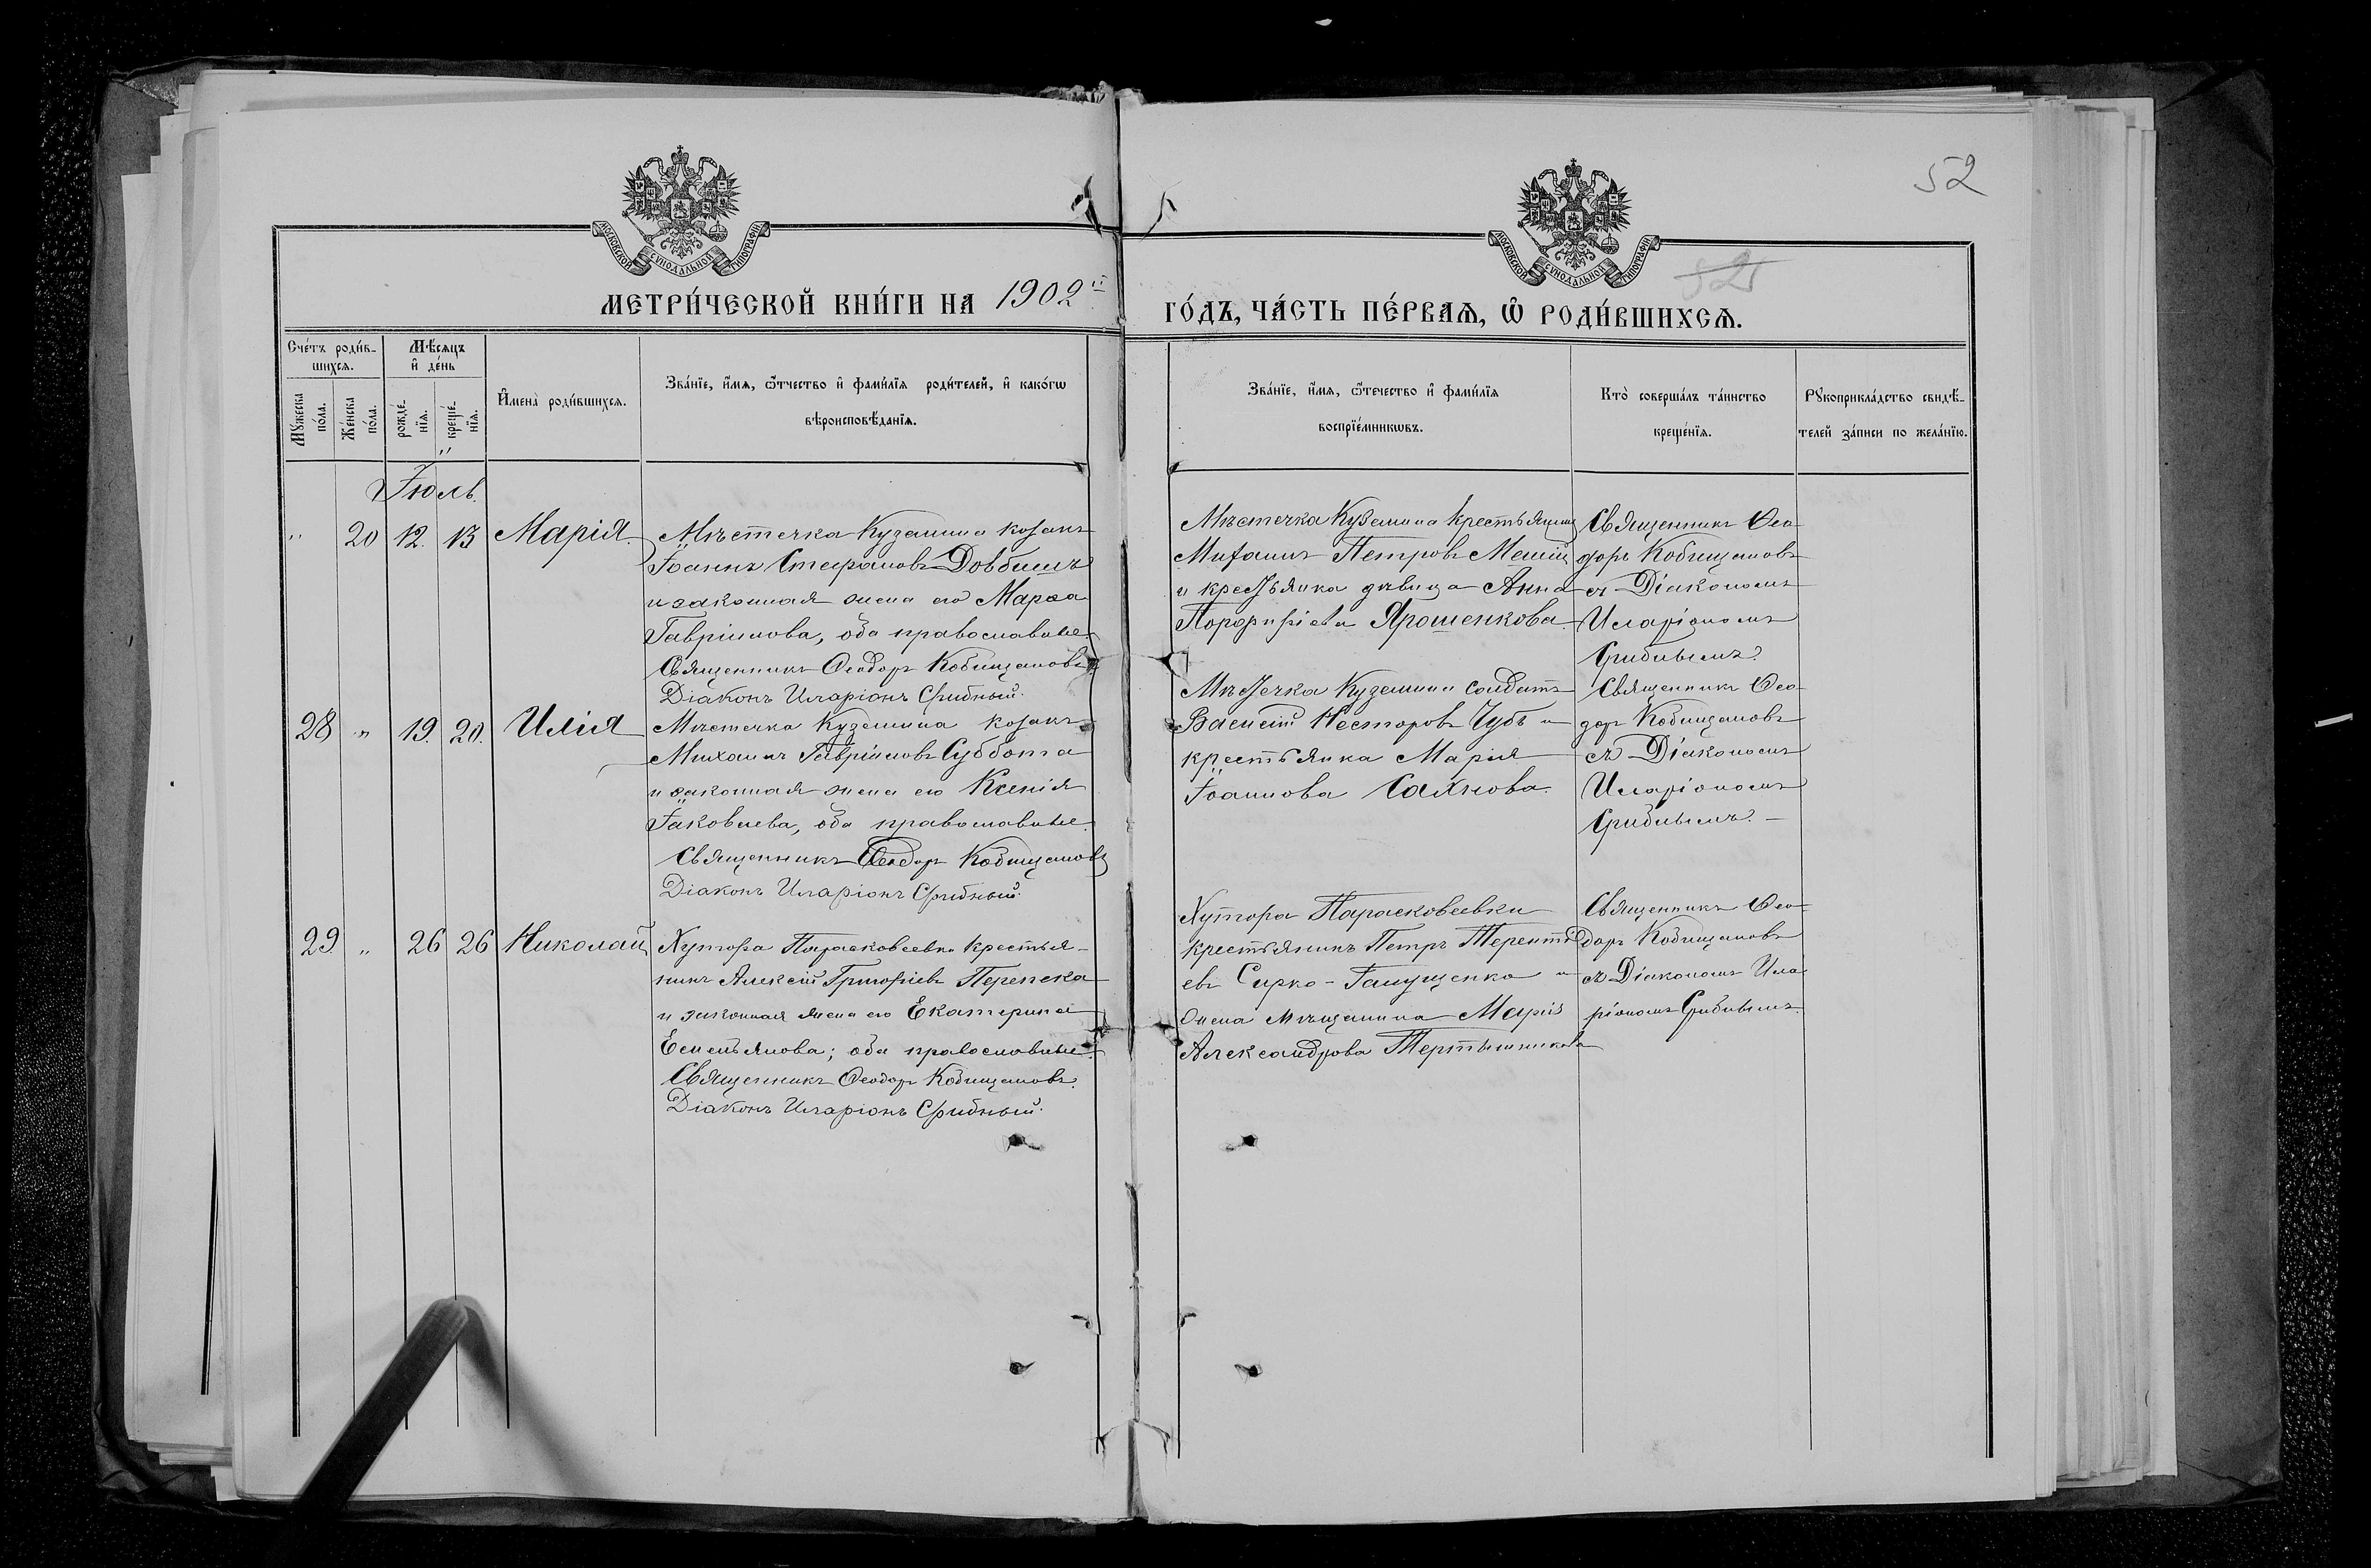 52
МОСКОВСКОЙ СѴНОДАЛЬНОЙ ТИПОГРАФІИ
МОСКОВСКОЙ СѴНОДАЛЬНОЙ ТИПОГРАФІИ
52
МЕТРИ́ЧЕСКОЙ КНИ́ГИ НА 1902й
ГО́ДЪ, ЧА́СТЬ ПЕ́РВАѦ, Ѡ҆ РОДИ́ВШИХСѦ.
Сче́тъ роди́в-
шихсѧ.
Мꙋ́жеска по́ла.
Же́нска по́ла.
Мѣ́сѧцъ
и҆ де́нь
рожде́-
нїѧ.
креще́-
нїѧ.
И҆мена̀ роди́вшихсѧ.
Зва́нїе, и҆́мѧ, ѻ҆́тчество и҆ фами́лїѧ роди́телей, и҆ како́гѡ
вѣроисповѣ́данїѧ.
Зва́нїе, и҆́мѧ, ѻ҆́течество и҆ фами́лїѧ
воспрїе́мникѡвъ.
Кто̀ соверша́лъ та́инство
креще́нїѧ.
Рꙋкоприкла́дство свидѣ́-
телей за́писи по жела́нїю.
Іюль.
" 20 12. 13 Марія.
Мѣстечка Куземина козакъ
Іоаннъ Стефановъ Довбишъ
и законная жена его Марѳа
Гавріилова, оба православные
Священникъ Ѳеодоръ Кобищановъ
Діаконъ Иларіонъ Срибный.
Мѣстечка Куземина крестьянинъ
Михаилъ Петровъ
и крестьянка дѣвица Анна
Порфиріева Ярошенкова.
Священникъ Ѳео-
доръ Кобищановъ
съ Діакономъ
Иларіономъ
Срибнымъ.
28 " 19. 20. Илія
Мѣстечка Куземина козакъ
Михаилъ Гавріиловъ Суббота
и законная жена его Ксенія
Іаковлева, оба православные.
Священникъ Ѳеодоръ Кобищановъ
Діаконъ Иларіонъ Срибный.
Мѣстечка Куземина солдатъ
Василій Несторовъ Чубъ и
крестьянка Марія
Іоаннова Сахнова.
Священникъ Ѳео-
доръ Кобищановъ
съ Діакономъ
Иларіономъ
Срибнымъ. –
29. " 26 26 Николай
Хутора Парасковеевки крестья-
нинъ Алексій Григоріевъ Перепека
и законная жена его Екатерина
Емельянова; оба православные.
Священникъ Ѳеодоръ Кобищановъ.
Діаконъ Иларіонъ Срибный.
Хутора Парасковеевки
крестьянинъ Петръ Теренті-
евъ Сирко-Ганущенко и
жена мѣщанина Марія
Александрова Тертышникова
Священникъ Ѳео-
доръ Кобищановъ
съ Діакономъ Ила-
ріономъ Срибнымъ.